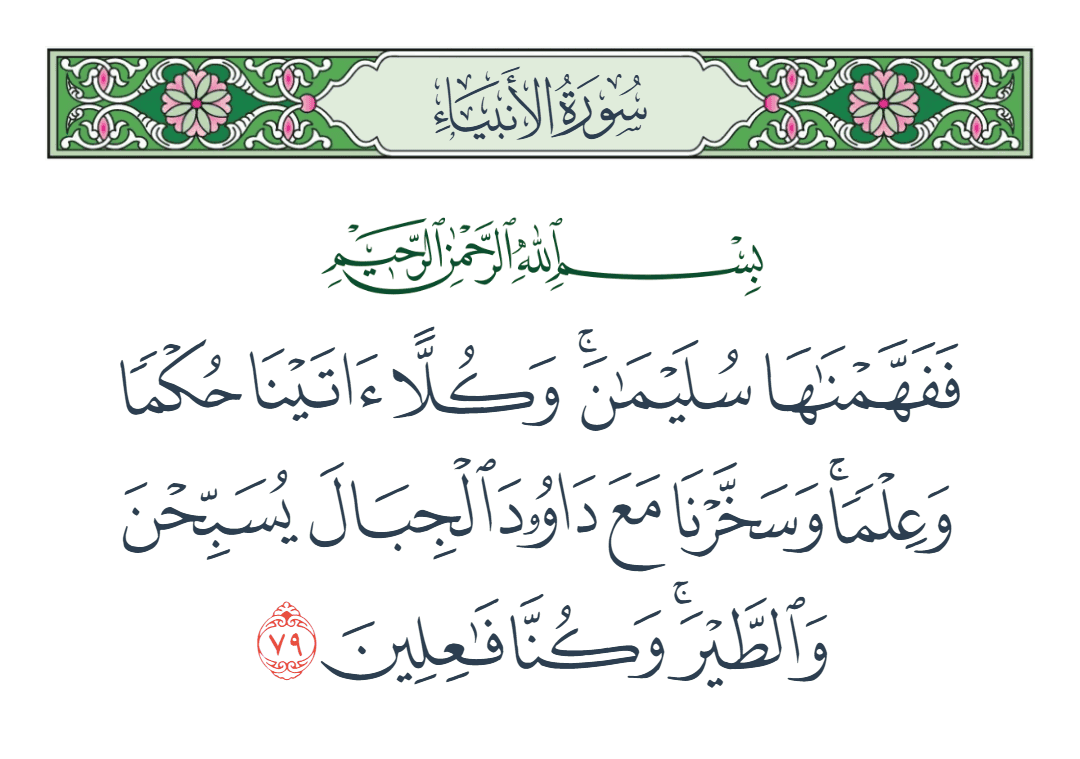 سُورَةُ الأَنبيَاءِ
بِسْمِ ٱللَّهِ ٱلرَّحْمَٰنِ ٱلرَّحِيمِ
فَفَهَّمْنَٰهَا سُلَيْمَٰنَۚ وَكُلًّا ءَاتَيْنَا حُكْمًا
وَعِلْمًاۚ وَسَخَّرْنَا مَعَ دَاوُۥدَ ٱلْجِبَالَ يُسَبِّحْنَ
وَٱلطَّيْرَۚ وَكُنَّا فَٰعِلِينَ ٧٩